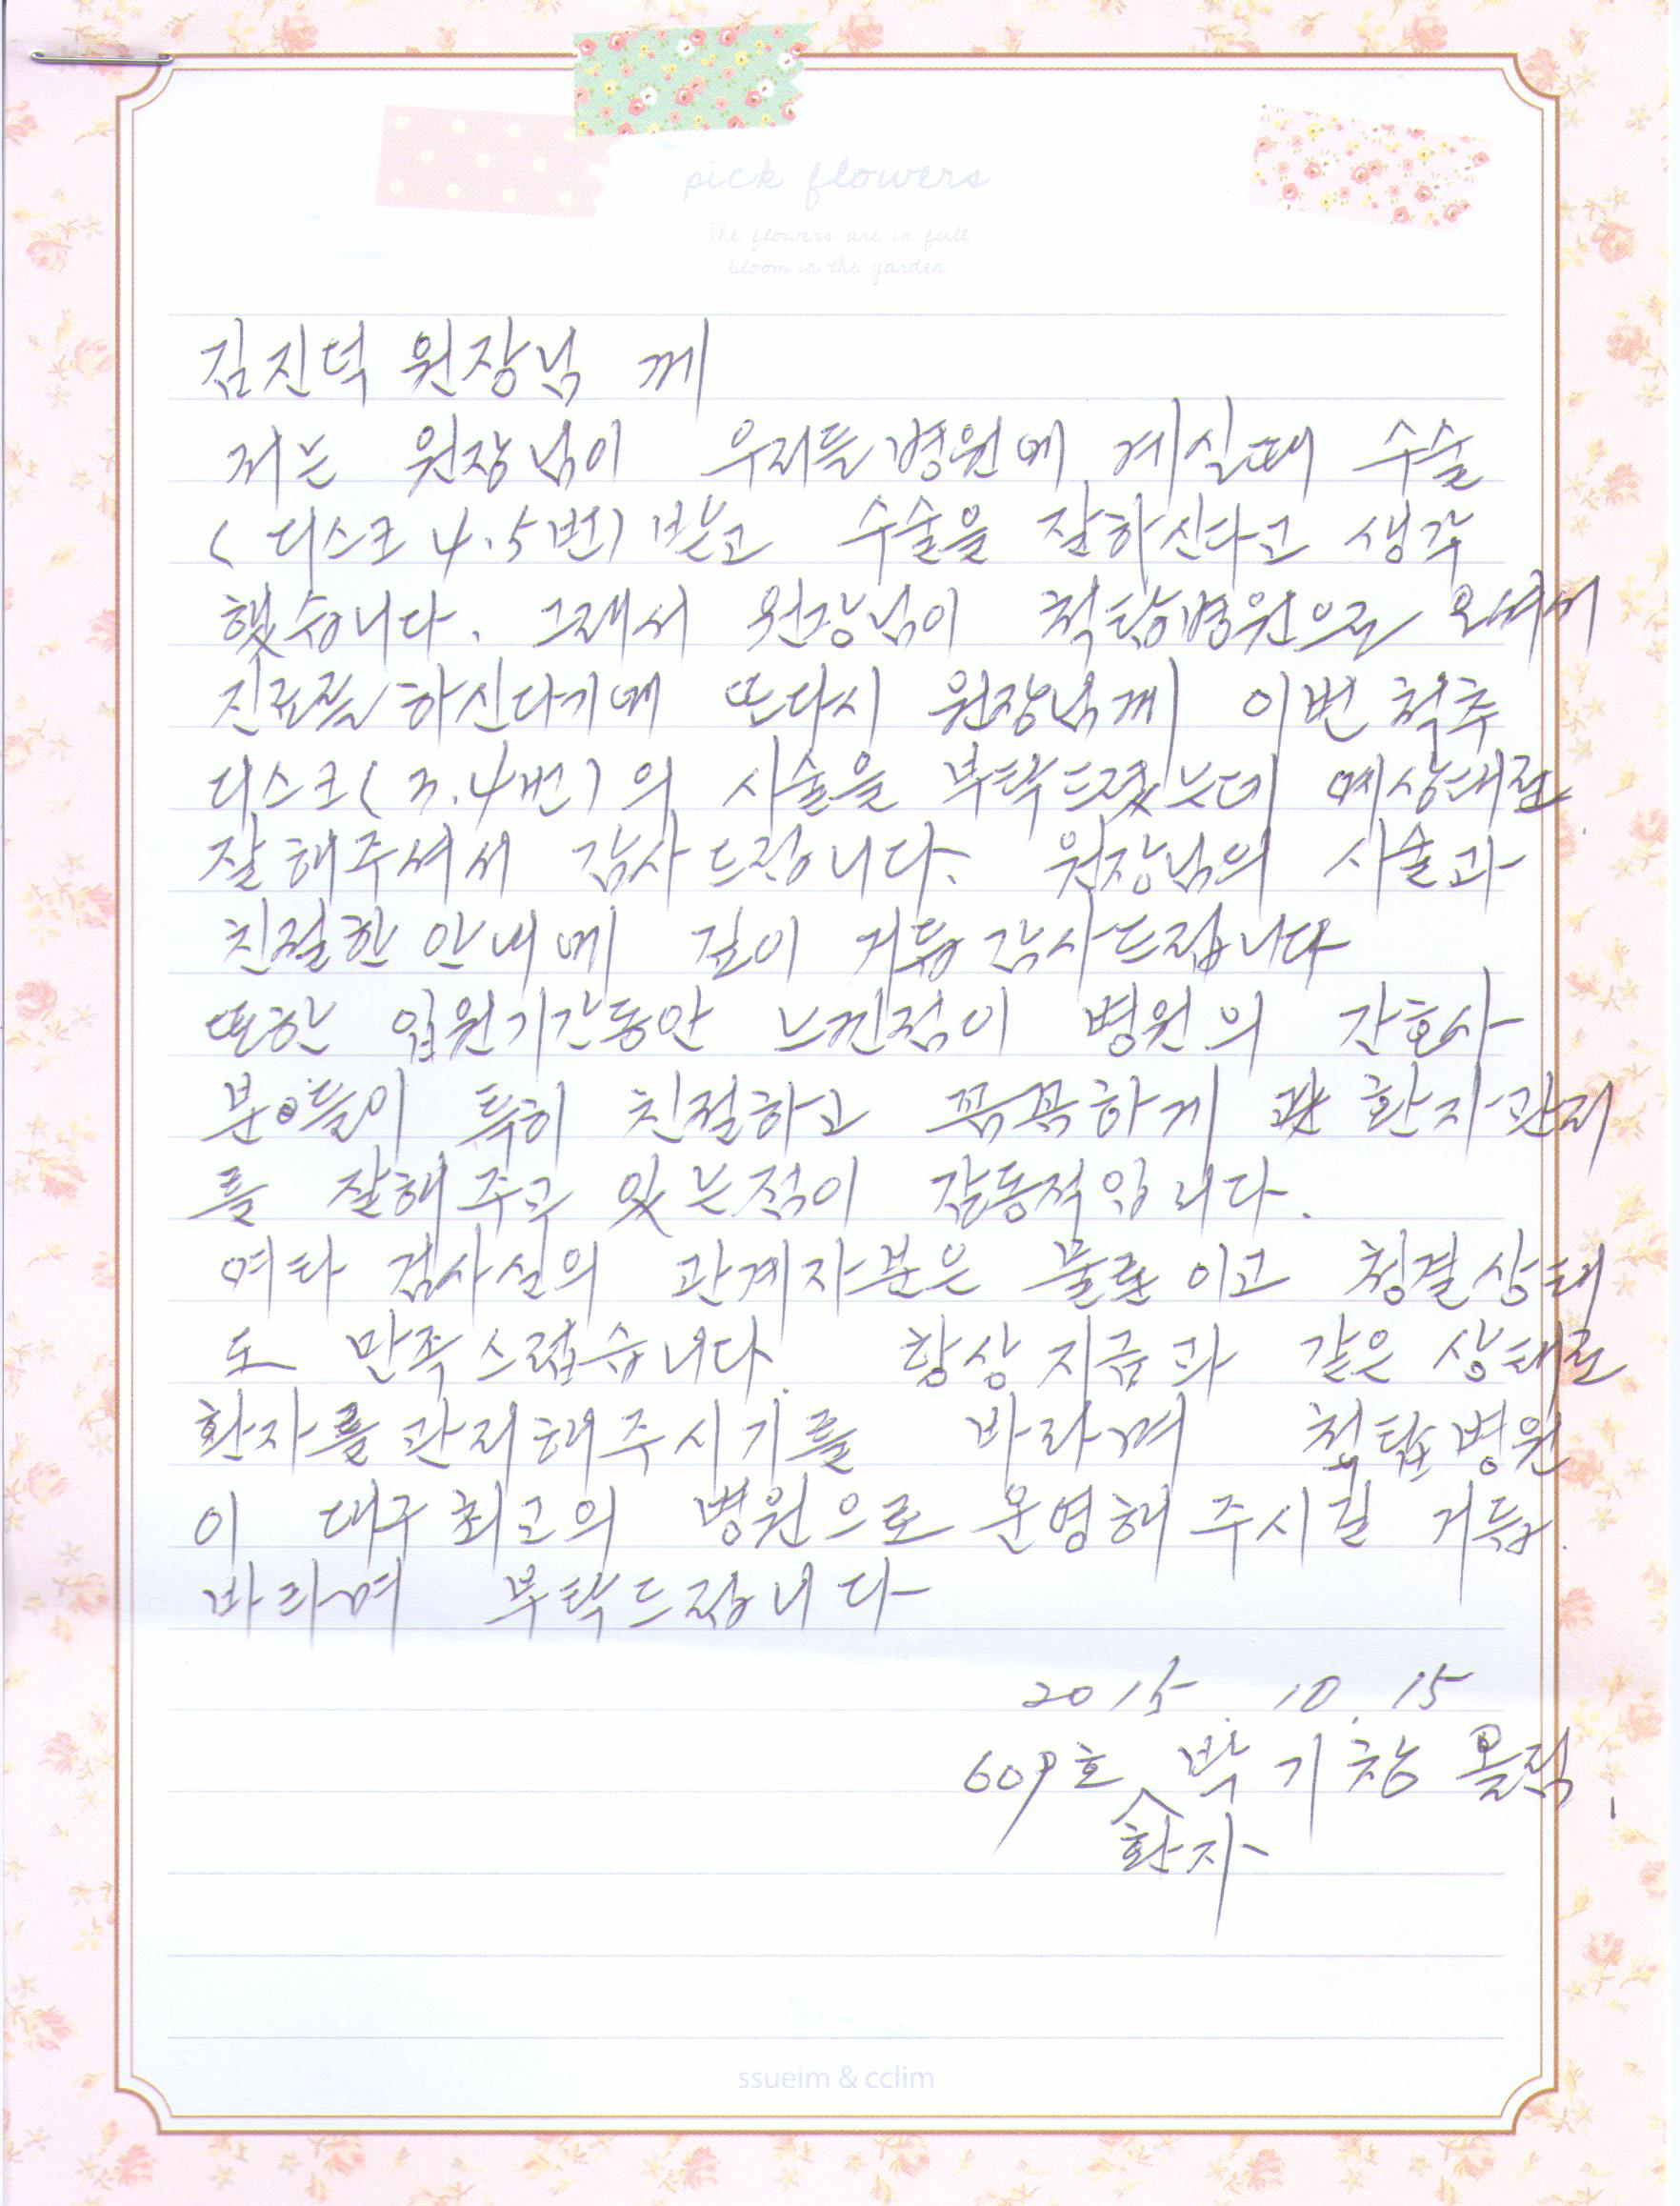 pick flowers
The flowers are in full
bloom in the garden
김진덕 원장님 께
저는 원장님이 우리들병원에 계실때 수술
(디스크 4.5번) 받고 수술을 잘하신다고 생각
했습니다. 그래서 원장님이 척탑병원으로 오셔서
진료를 하신다기에 또다시 원장님께 이번 척추
디스크(3.4번)의 시술을 부탁드렸는데 예상대로
잘해주셔서 감사드립니다. 원장님의 시술과
친절한 안내에 깊이 거듭 감사드립니다
또한 입원기간동안 느낀점이 병원의 간호사
분들이 특히 친절하고 꼼꼼하게 환자관리
를 잘해주고 있는점이 감동적입니다.
여타 검사실의 관계자분은 물론이고 청결상태
도 만족스럽습니다. 항상 지금과 같은 상태로
환자를 관리해주시기를 바라며 척탑병원
이 대구최고의 병원으로 운영해 주시길 거듭
바라며 부탁드립니다
2015. 10. 15
609호 박기창 올림.
환자
ssueim & cclim